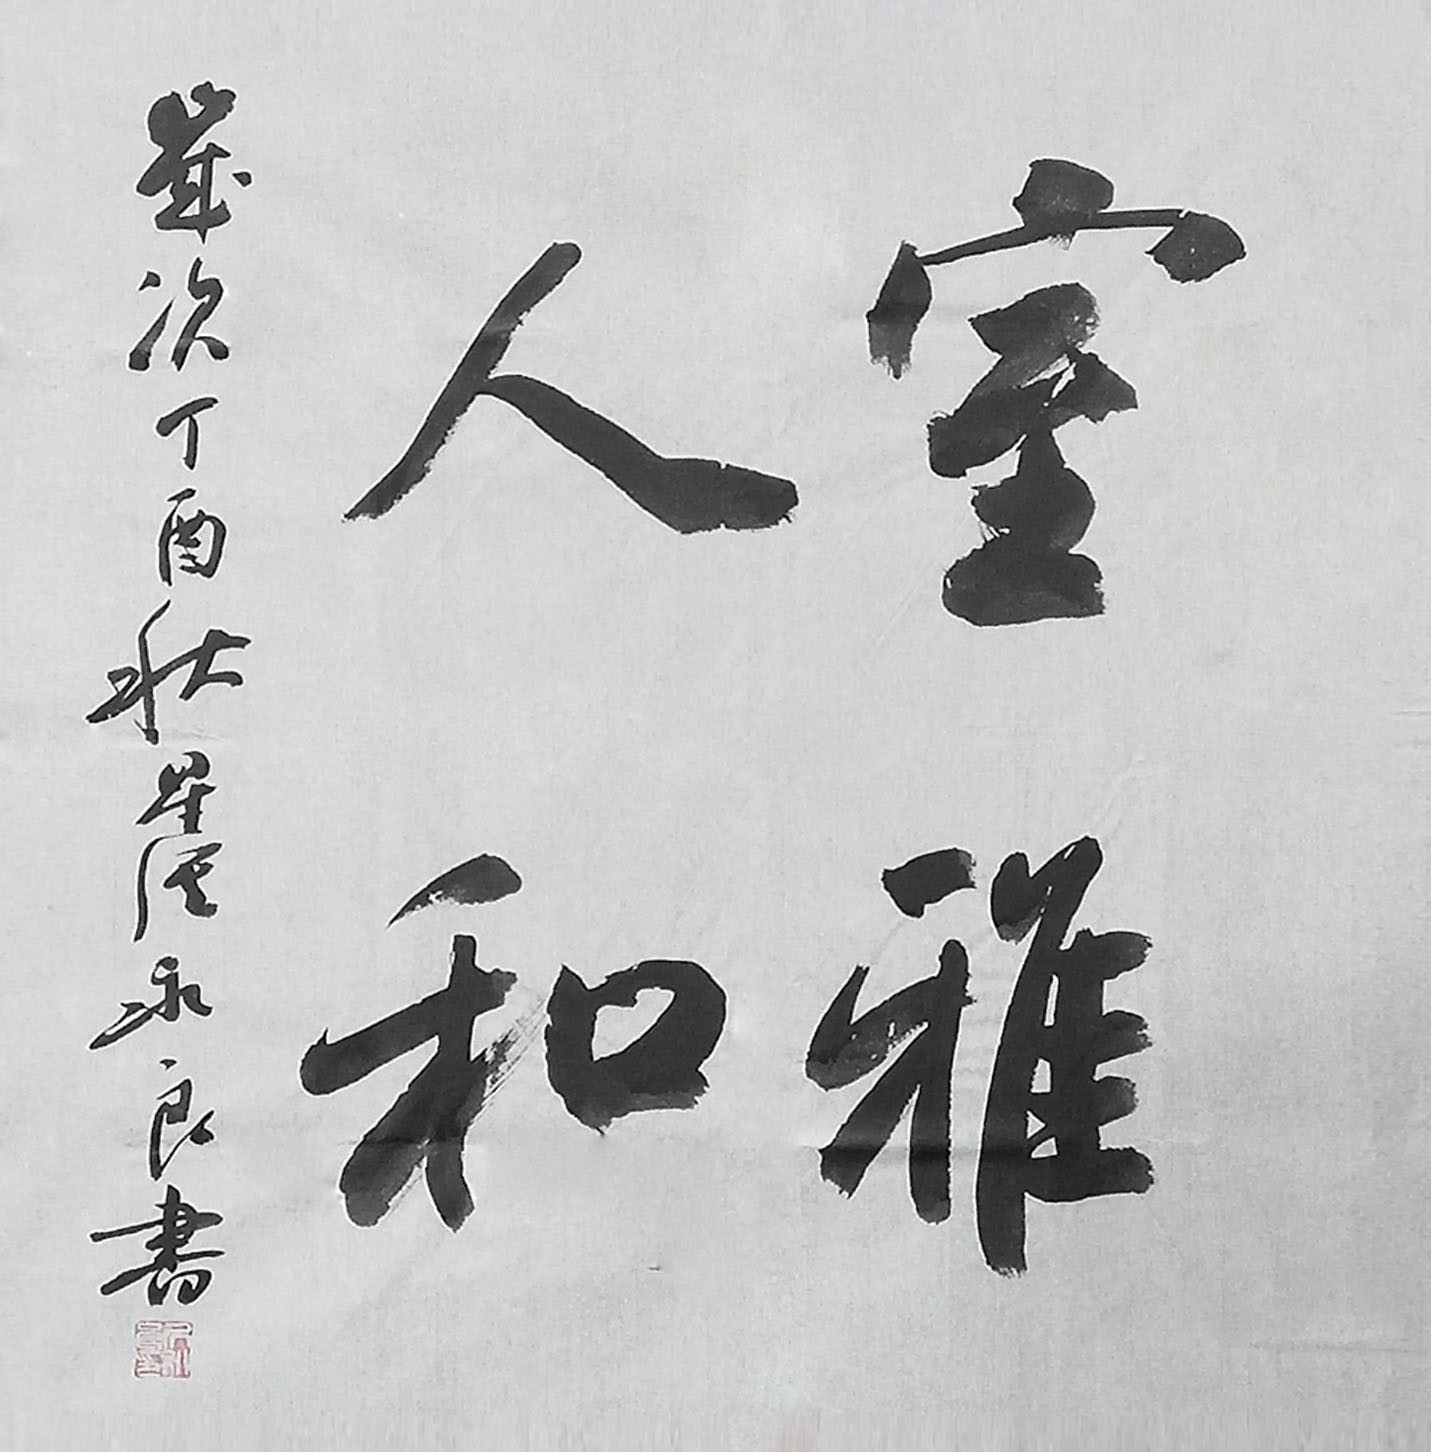 室雅
人和
歲次丁酉秋星潭永良書